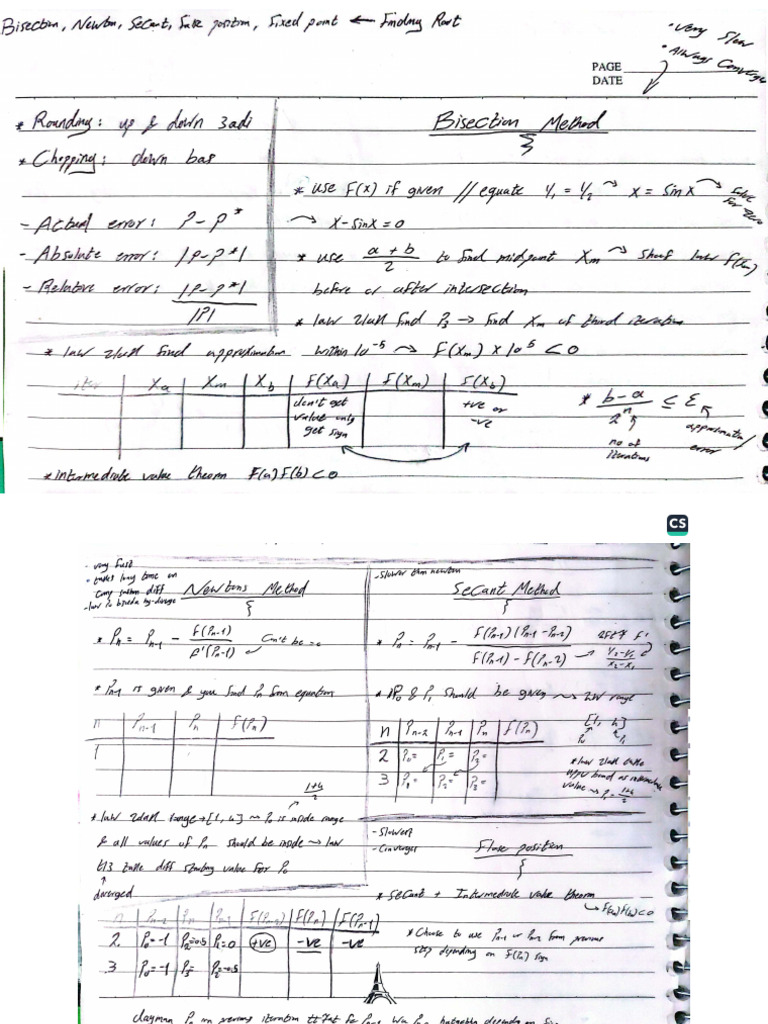 Bisection, Newton, Secant, false position, Fixed point ← Finding Root
• Very Slow
• Always Converge
PAGE
DATE
* Rounding: up & down 3adi
* Chopping: down bas
- Actual error: P - P*
- Absolute error: |P - P*|
- Relative error: |P - P*| / |P|
Bisection Method
* use F(x) if given // equate Y1 = Y2 → x = sin x → solve for zero
→ x - sinx = 0
* use a + b / 2 to find midpoint Xm → shouf law f(Xm)
before or after intersection
* law 2lak find P3 → find Xm of third iteration
* law 2lak find approximation within 10^-5 → F(Xm) x 10^5 < 0
iter | Xa | Xm | Xb | F(Xa) | f(Xm) | F(Xb)
don't get value only get sign
+ve or -ve
* b - a / 2^n ≤ ε
no of iterations
approximation error
* intermediate value theorm F(a)F(b) < 0
CS
- very fast
- takes long time on
diff
Newtons Method
* Pn = Pn-1 - f(Pn-1) / f'(Pn-1)
Can't be = 0
* Pn-1 is given & you find Pn from equation
n | Pn-1 | Pn | f(Pn)
1
1+4 / 2
* law 2alak range → [1, 4] → P0 is inside range
& all values of Pn should be inside → law
tl3 take diff starting value for P0
diverged
- Slower than newton
Secant Method
* Pn = Pn-1 - f(Pn-1)(Pn-1 - Pn-2) / f(Pn-1) - f(Pn-2)
Y2-Y1 / X2-X1
* P0 & P1 should be given → law range
[1, 4]
P0 P1
n | Pn-2 | Pn-1 | Pn | f(Pn)
2 | P0= | P1= | P2=
3 | P1= | P2= | P3=
value → P1 = 1+4 / 2
- Slowest
- Converges
Flase position
* Secant + Intermediate value theorm
→ F(a)F(b) < 0
n | Pn-2 | Pn | Pn-1 | F(Pn-2) | F(Pn) | F(Pn-1)
2 | P0=-1 | P2=-0.5 | P1=0 | +ve | -ve | -ve
3 | P0=-1 | P3= | P2=-0.5
* Choose to use Pn-1 or Pn-2 from previous
step depending on f(Pn) sign